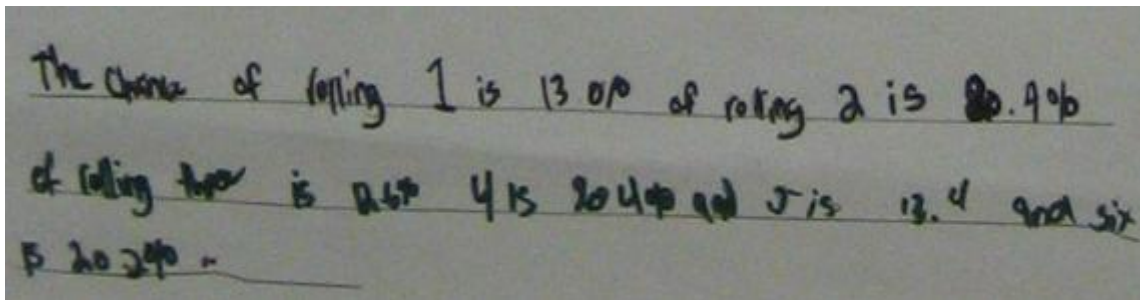 The chance of rolling 1 is 13 0% of rolling 2 is 20.4%
of rolling three is 12.6% 4 is 20 4% and 5 is 13.4 and six
is 20 2%